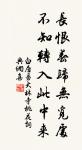 長恨春歸無覓處
不知轉入此中來
白居易大林寺桃花詞
典湖集